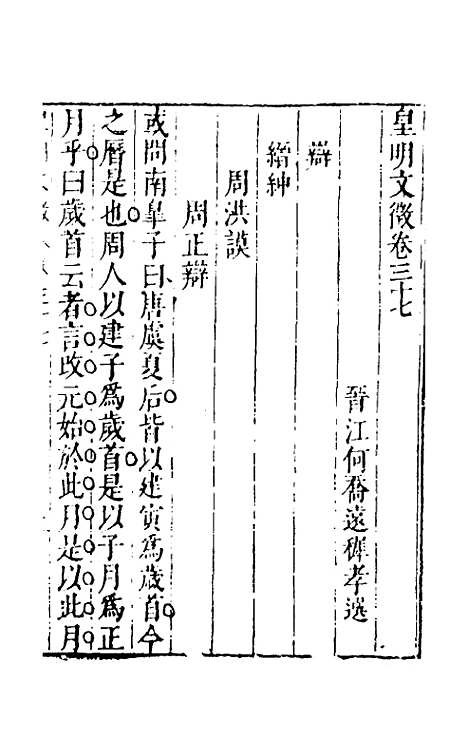 皇明文徵卷三十七
晉江何喬遠穉孝選
辯
縉紳
周洪謨
周正辯
或問南臯子曰唐虞夏后皆以建寅爲歲首今
之曆是也周人以建子爲歲首是以子月爲正
月乎曰歲首云者言改元始於此月是以此月